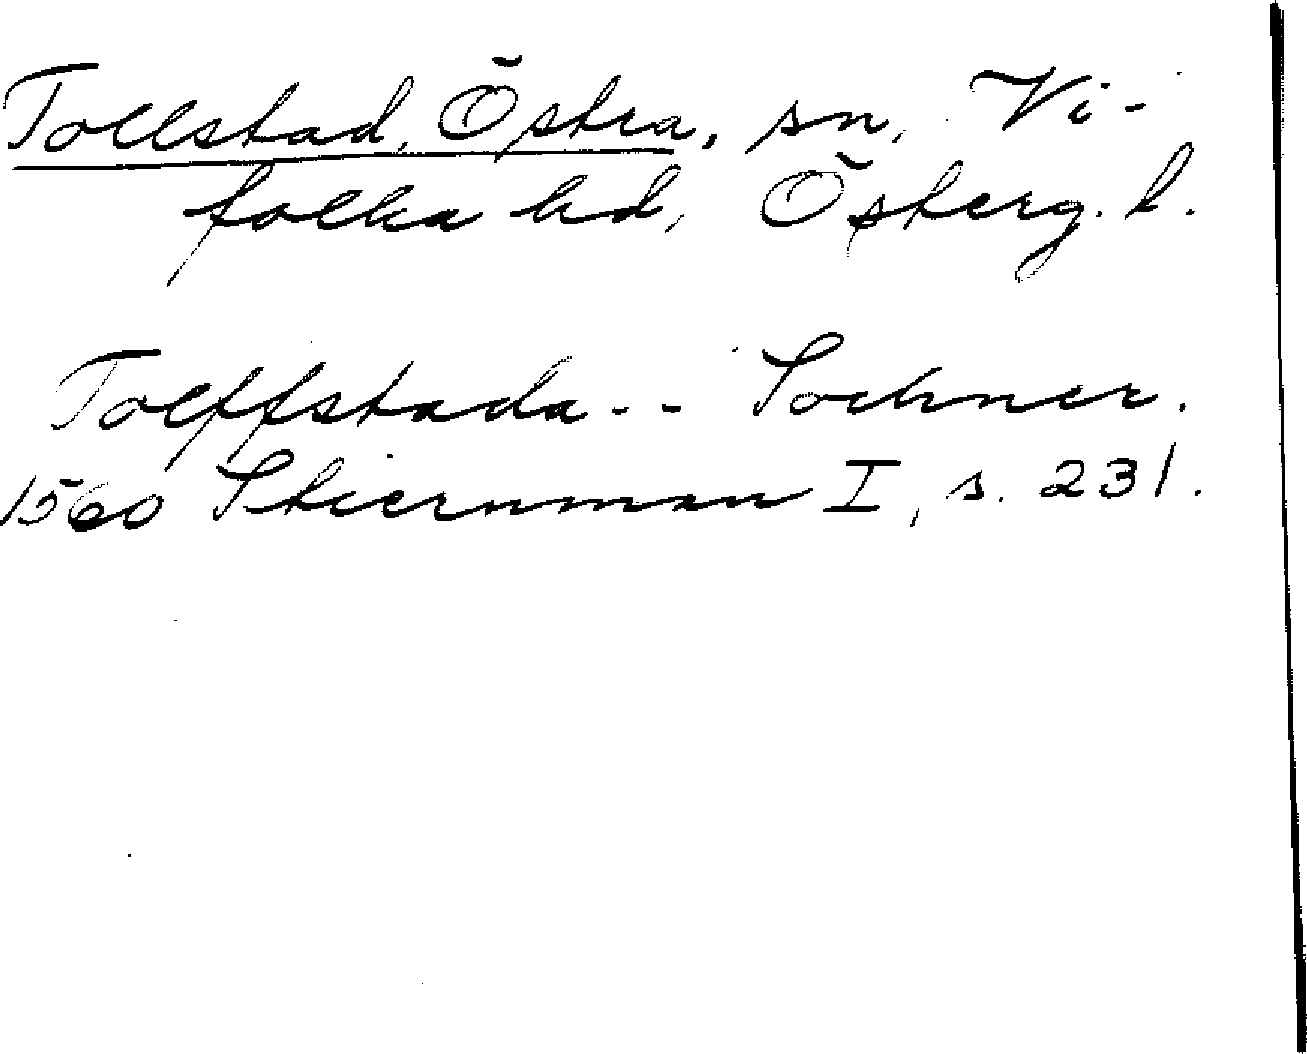 Tollstad, Östra, sn, Vi-
folka hd, Österg. l.
Tolffstada - - Sochner.
1560 Stiernman I, s. 231.